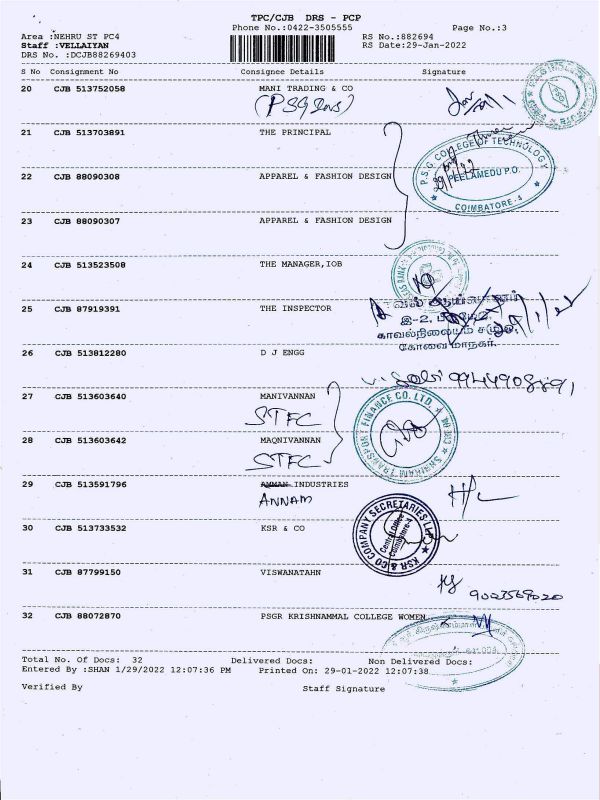 TPC/CJB DRS - PCP
Phone No.:0422-3505555 Page No.:3
Area :NEHRU ST PC4 RS No.:882694
Staff :VELLAIYAN RS Date:29-Jan-2022
DRS No. :DCJB88269403
S No Consignment No Consignee Details Signature
20 CJB 513752058 MANI TRADING & CO
21 CJB 513703891 THE PRINCIPAL
P.S.G. COLLEGE OF TECHNOLOGY
PEELAMEDU P.O.
COIMBATORE-4
22 CJB 88090308 APPAREL & FASHION DESIGN
23 CJB 88090307 APPAREL & FASHION DESIGN
24 CJB 513523508 THE MANAGER,IOB
25 CJB 87919391 THE INSPECTOR
கோவை மாநகர்.
26 CJB 513812280 D J ENGG
9944908891
27 CJB 513603640 MANIVANNAN
STFC
28 CJB 513603642 MAQNIVANNAN
STFC
SHRIRAM TRANSPORT FINANCE CO. LTD.
29 CJB 513591796 AMMAN INDUSTRIES
ANNAM
30 CJB 513733532 KSR & CO
KSR & CO COMPANY SECRETARIES LLP
Central Office
Coimbatore-4
31 CJB 87799150 VISWANATAHN
32 CJB 88072870 PSGR KRISHNAMMAL COLLEGE WOMEN
Total No. Of Docs: 32 Delivered Docs: Non Delivered Docs:
Entered By :SHAN 1/29/2022 12:07:36 PM Printed On: 29-01-2022 12:07:38
Verified By Staff Signature